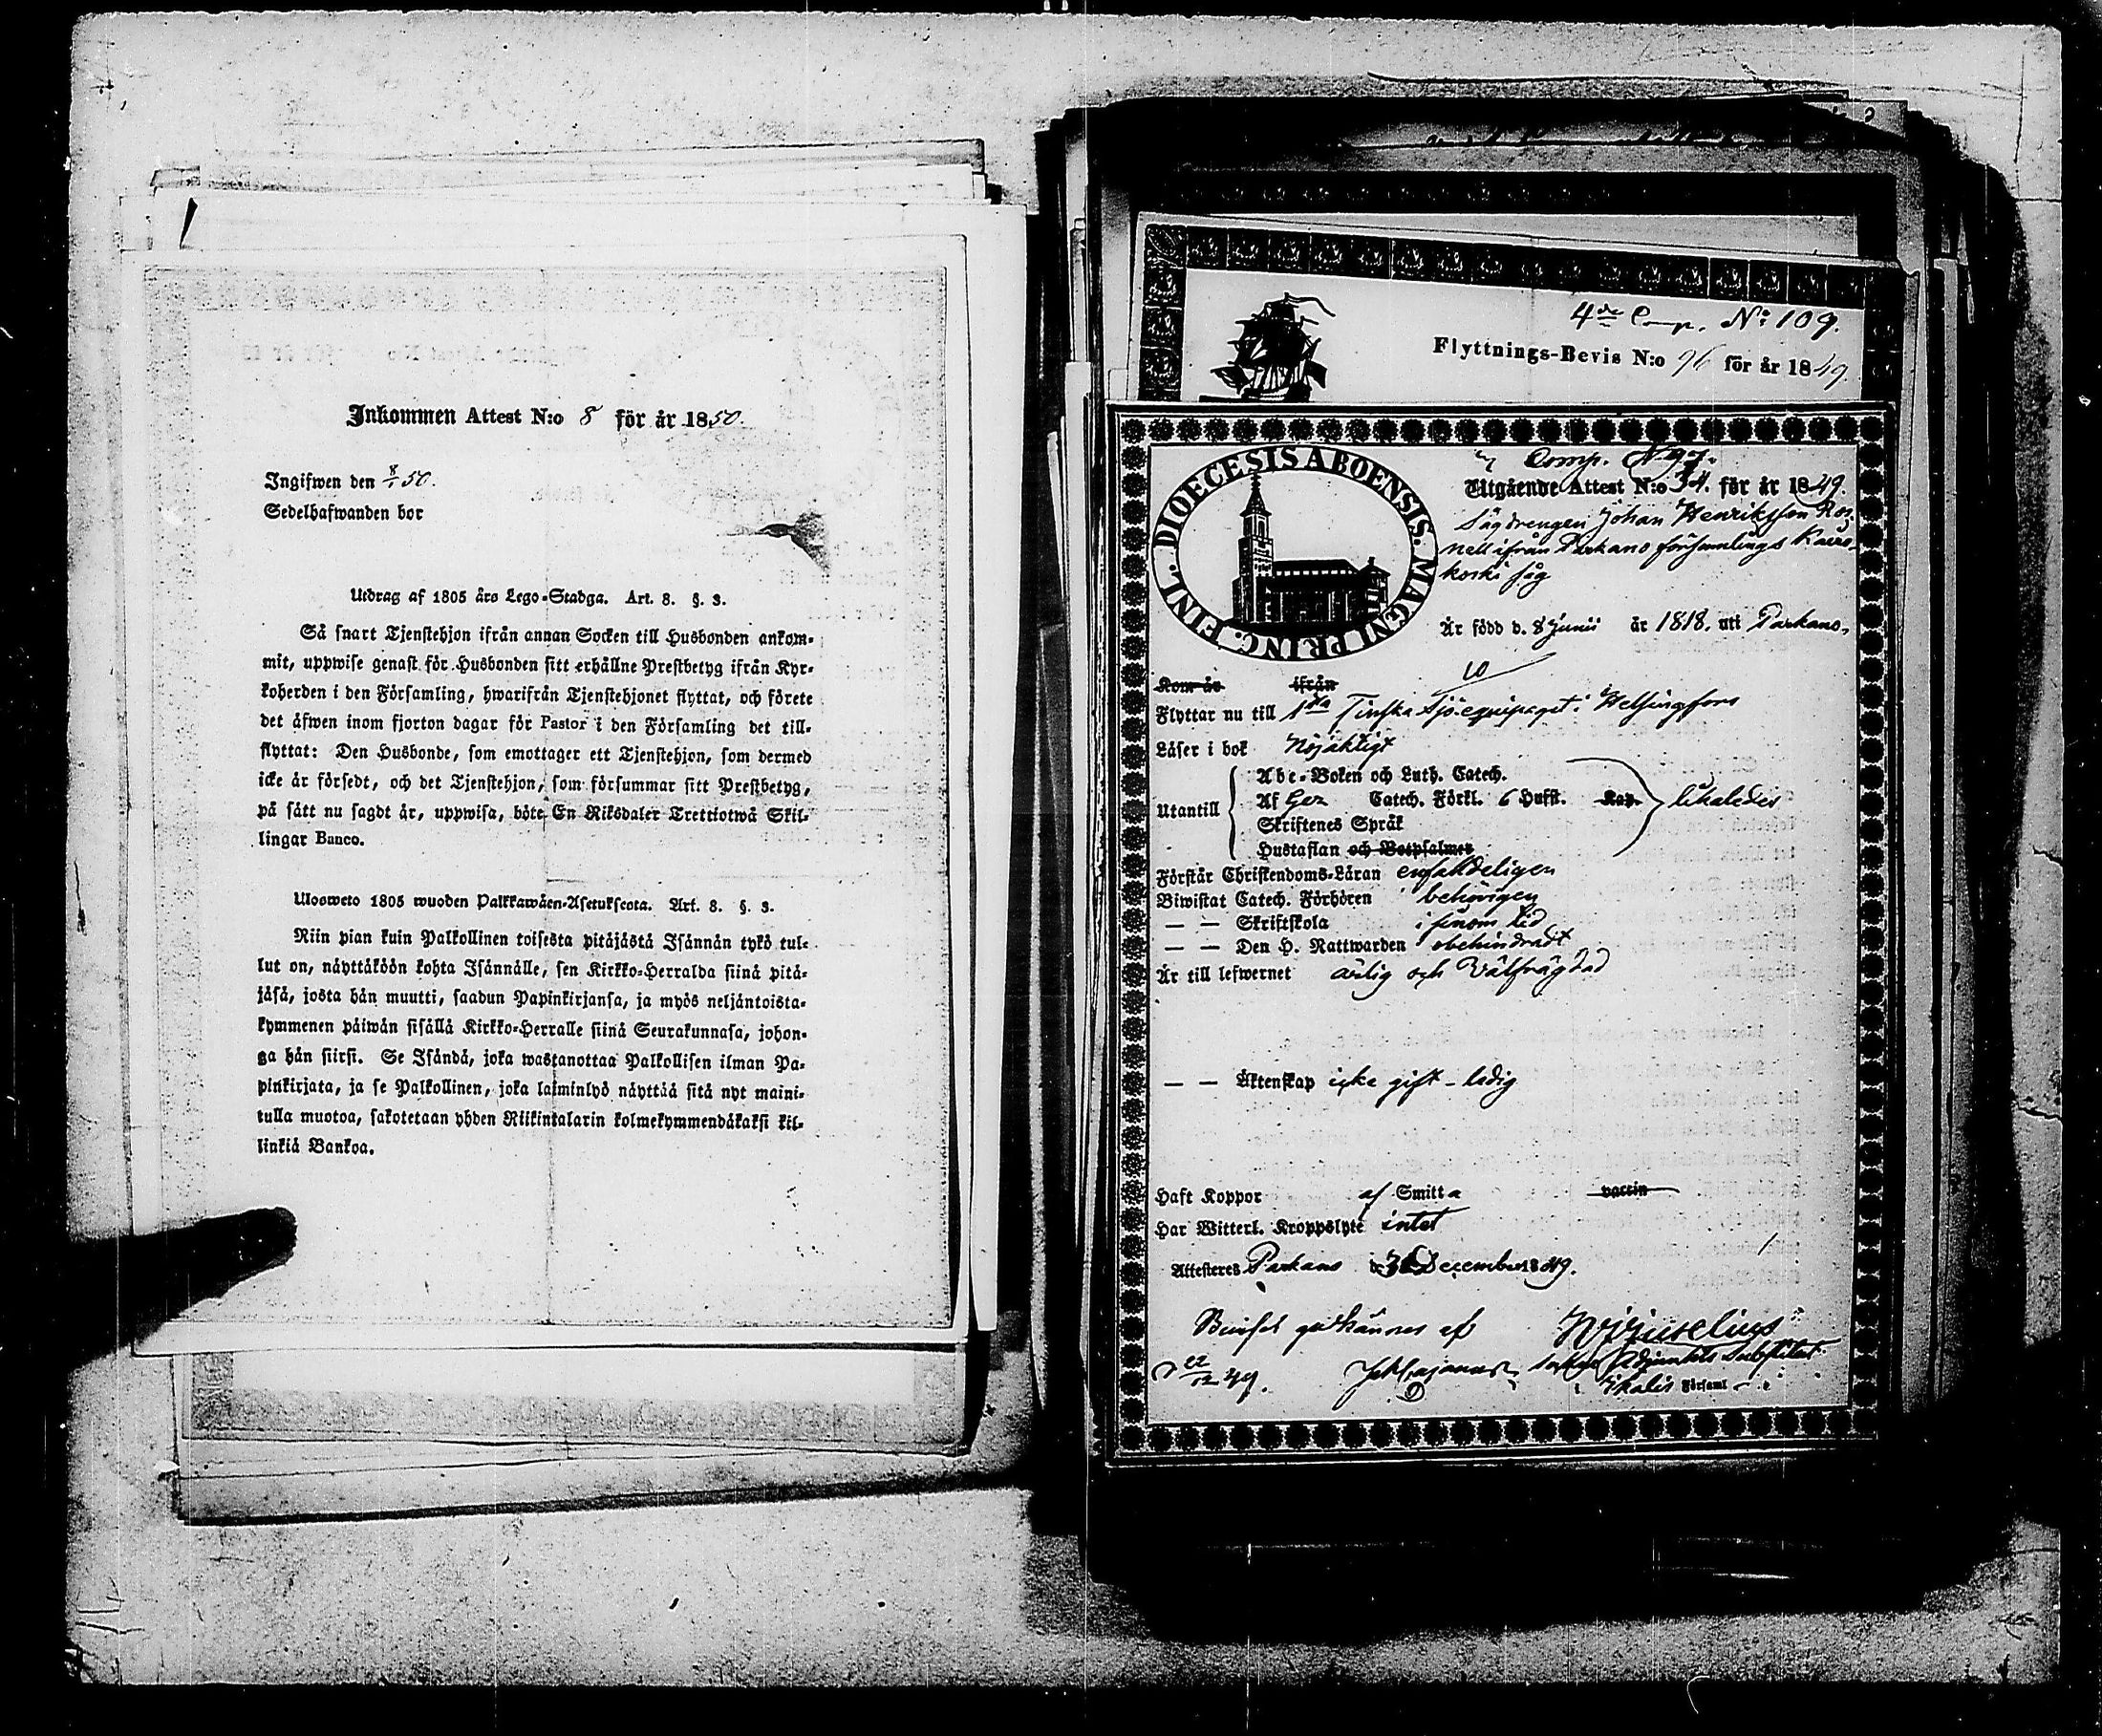 Inkommen Attest N:o 8 för år 1850.
Ingifwen den 8/1 50.
Sedelhafwanden bor
Utdrag af 1805 års Lego-Stadga. Art. 8. §. 3.
Så snart Tjenstehjon ifrån annan Socken till Husbonden ankom-
mit, uppwise genast för Husbonden sitt erhållne Prestbetyg ifrån Kyr-
koherden i den Församling, hwarifrån Tjenstehjonet flyttat, och förete
det äfwen inom fjorton dagar för Pastor i den Församling det till-
flyttat: Den Husbonde, som emottager ett Tjenstehjon, som dermed
icke är försedt, och det Tjenstehjon, som försummar sitt Prestbetyg,
på sätt nu sagdt är, uppwisa, böte En Riksdaler Trettiotwå Skil-
lingar Banco.
Ulosweto 1805 wuoden Palkkawäen-Asetuksesta. Art. 8. §. 3.
Niin pian kuin Palkollinen toisesta pitäjästä Isännän tykö tul-
lut on, näyttäköön kohta Isännälle, sen Kirkko-Herralda siinä pitä-
jäsä, josta hän muutti, saadun Papinkirjansa, ja myös neljäntoista-
kymmenen päiwän sisällä Kirkko-Herralle siinä Seurakunnasa, johon-
ga hän siirsi. Se Isändä, joka wastanottaa Palkollisen ilman Pa-
pinkirjata, ja se Palkollinen, joka laiminlyö näyttää sitä nyt maini-
tulla muotoa, sakotetaan yhden Riikintalarin kolmekymmendäkaksi kil-
linkiä Bankoa.
4de Comp. N:o 109.
Flyttnings-Bevis N:o 96 för år 1849.
DIOECESIS ABOENSIS. MAGNI PRINC. FINL.
Comp. N:o 97.
Utgående Attest N:o 34. för år 1849.
Sågdrengen Johan Henriksson Ros-
nell ifrån Parkano församlings Kairo-
koski såg
Är född d. 8 Junii år 1818. uti Parkano.
10
Kom år ifrån
Flyttar nu till 1sta Finska Sjö-equipaget i Helsingfors
Läser i bok Nöjaktigt
Utantill
Abc-Boken och Luth. Catech.
Af Gez Catech. Förkl. 6 Hufst. Kap. likaledes
Skriftenes Språk
Hustaflan och Botpsalmer
Förstår Christendoms-Läran enfaldeligen
Biwistat Catech. Förhören behörigen
— — Skriftskola i sinom tid
— — Den H. Nattwarden obehindradt
Är till lefwernet ärlig och Välfrägdad
— — Äktenskap icke gift - ledig
Haft Koppor af Smitta vaccin
Har Witterl. Kroppslyte intet
Attesteras Parkano d. December 1849.
Beviset godkännes af
d 22/12 49.
Adjunkts Substitut
i Ikalis Församl